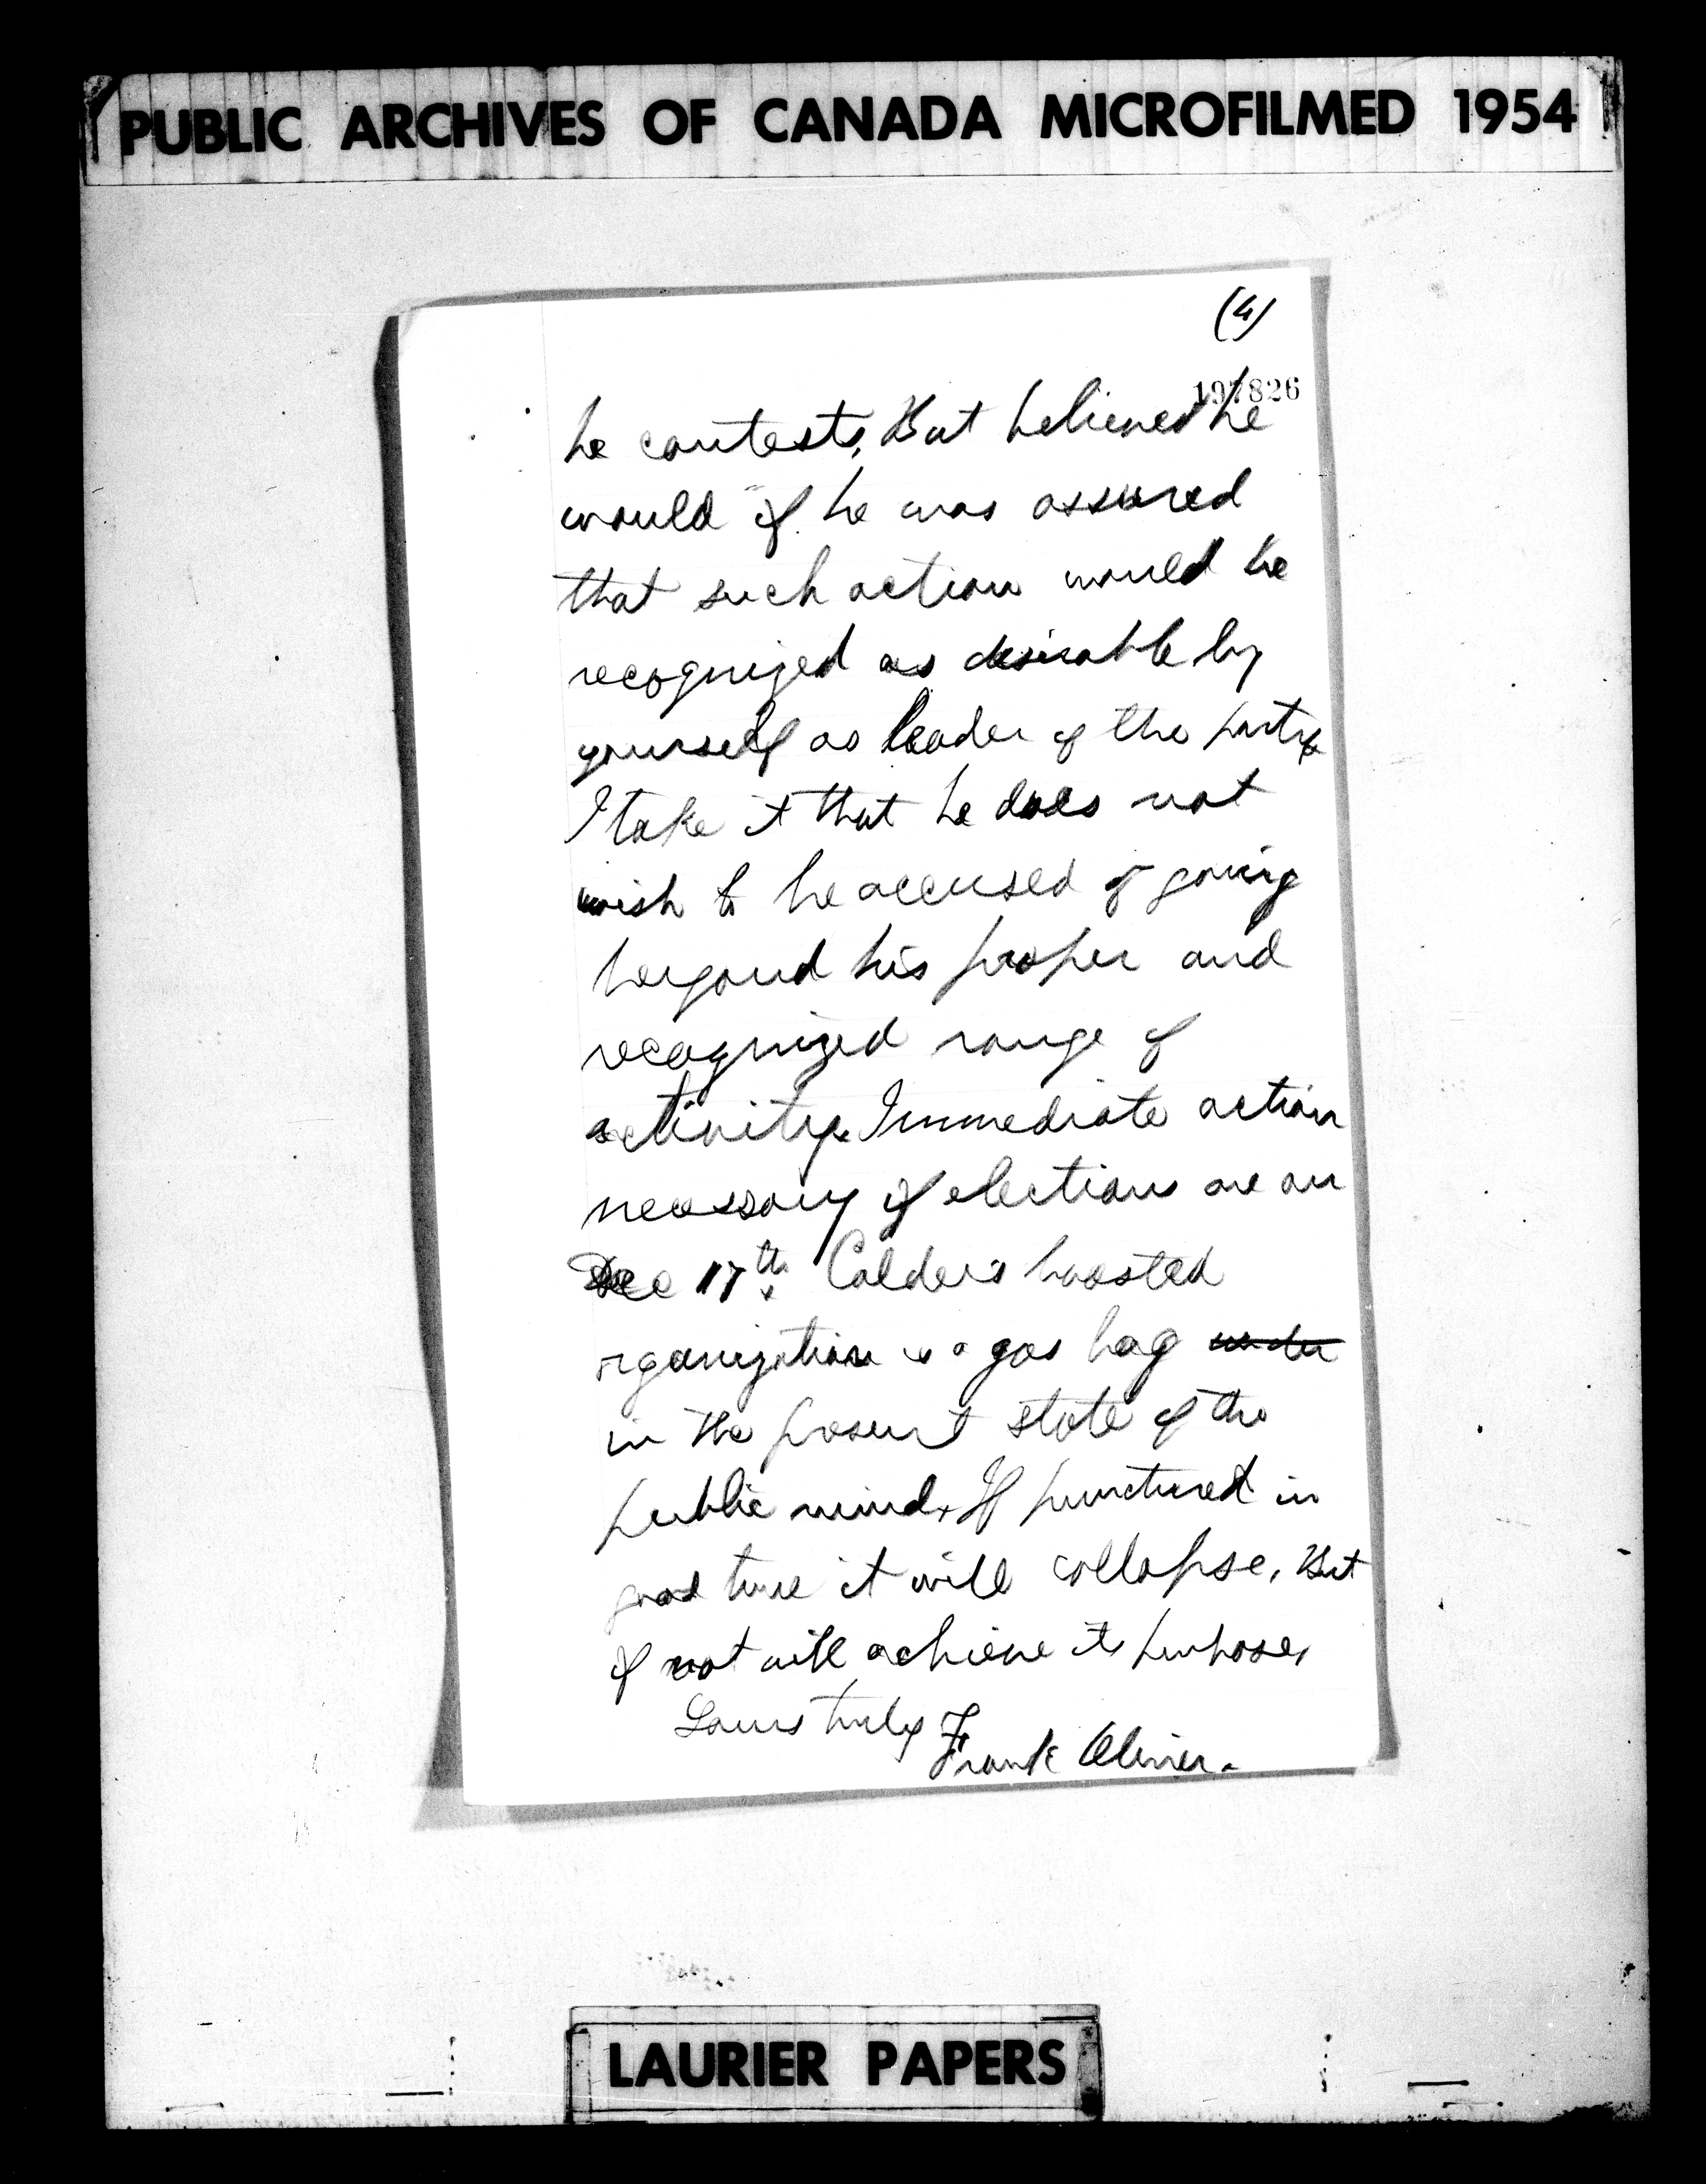 PUBLIC ARCHIVES OF CANADA MICROFILMED 1954
(4)
197826
be contests. But believed he
would if he was assured
that such action would be
recognized as desirable by
yourself as leader of the party.
I take it that he does not
wish to be accused of going
beyond his proper and
recognized range of
activity. Immediate action
necessary if elections are on
Dec 17th. Calders boasted
organization is a gas bag under
in the present state of the
public mind. If punctured in
good time it will collapse. But
if not will achieve its purpose.
Yours truly
Frank Oliver.
LAURIER PAPERS